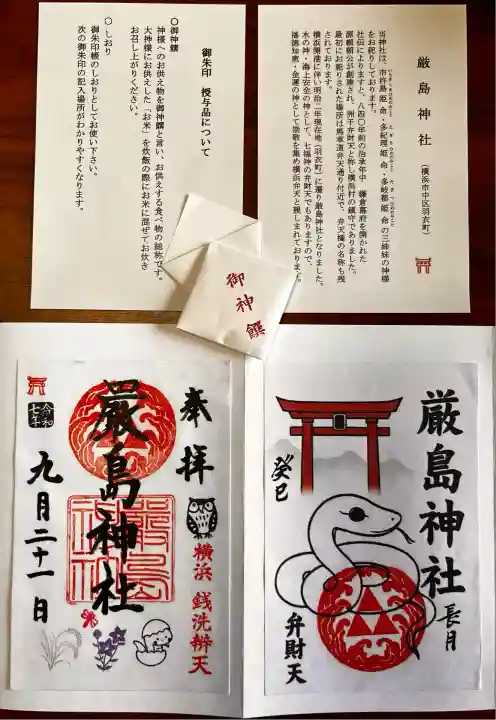 厳島神社
（横浜市中区羽衣町）
当神社は、市杵島姫命・多紀理姫命・多岐都姫命の三姉妹の神様
をお祀りしております。
社伝によりますと、八四〇年前の治承年中、鎌倉幕府を開かれた
源頼朝公が創業され、洲干弁財天と称し横浜村の鎮守でありました。
最初にお祀りされた場所は馬車道弁天通り付近で、弁天橋の名称も残
されております。
横浜開港に伴い明治二年現在地（羽衣町）に遷り厳島神社となりました。
水の神・海上安全の神として、七福神の弁財天でもありますので、
福徳知恵・金運の神として崇敬を集め横浜弁天と親しまれております。
御朱印 授与品について
〇御神饌
神様へのお供え物を御神饌と言い、お供えする食べ物の総称です。
大神様にお供えした「お米」を炊飯の際にお米に混ぜてお炊き
お召し上がりください。
〇しおり
御朱印帳のしおりとしてお使い下さい。
次の御朱印の記入場所がわかりやすくなります。
御神饌
厳島神社
長月
癸巳
弁財天
奉拝
横浜 銭洗辨天
厳島神社
令和
七年
九月二十一日